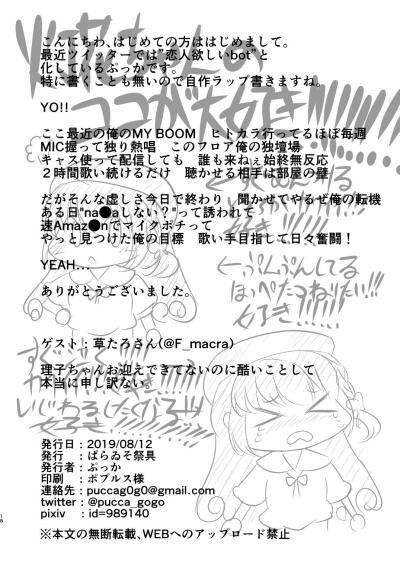 こんにちわ、はじめての方ははじめまして。
最近ツイッターでは"恋人欲しいbot"と
化しているぷっかです。
特に書くことも無いので自作ラップ書きますね。
YO!!
ここ最近の俺のMY BOOM　ヒトカラ行ってるほぼ毎週
MIC握って独り熱唱　このフロア俺の独壇場
キャス使って配信しても　誰も来ねぇ始終無反応
２時間歌い続けるだけ　聴かせる相手は部屋の壁
だがそんな虚しさ今日で終わり　聞かせてやるぜ俺の転機
ある日"na●aしない？"って誘われて
速Amaz●nでマイクポチって
やっと見つけた俺の目標　歌い手目指して日々奮闘！
YEAH...
ありがとうございました。
ゲスト：草たろさん(@F_macra)
理子ちゃんお迎えできてないのに酷いことして
本当に申し訳ない。
発行日：2019/08/12
発行　：ぱらゐそ祭具
発行者：ぷっか
印刷　：ポプルス様
連絡先：puccag0g0@gmail.com
twitter：@pucca_gogo
pixiv　：id=989140
※本文の無断転載、WEBへのアップロード禁止
ココが大好き!!!!!
←ぷんぷんしてる
ほっぺたつねりたい!!
好き!!!!!
18